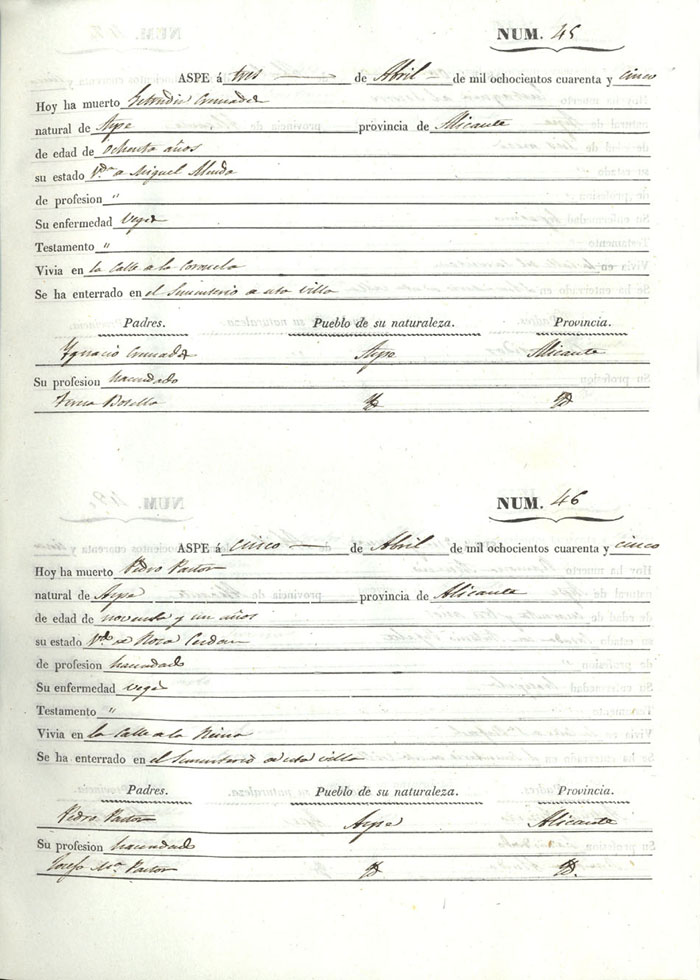 NUM. 45
ASPE á tres de Abril de mil ochocientos cuarenta y cinco
Hoy ha muerto
natural de Aspe provincia de Alicante
de edad de ochenta años
su estado V.da de Miguel
de profesion "
Su enfermedad vegez
Testamento "
Vivia en la Calle de la Coronela
Se ha enterrado en el Simenterio de esta villa
Padres. Pueblo de su naturaleza. Provincia.
Ygnacio Aspe Alicante
Su profesion hacendado
Teresa Botella Yd Yd
NUM. 46
ASPE á cinco de Abril de mil ochocientos cuarenta y cinco
Hoy ha muerto Pedro Pastor
natural de Aspe provincia de Alicante
de edad de noventa y un años
su estado V.do de Rosa Cerdan
de profesion hacendado
Su enfermedad vegez
Testamento "
Vivia en la Calle de la Reina
Se ha enterrado en el Simenterio de esta villa
Padres. Pueblo de su naturaleza. Provincia.
Pedro Pastor Aspe Alicante
Su profesion hacendado
Josefa M.a Pastor Yd Yd.